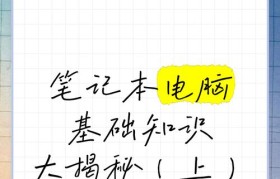 笔记本电脑
基础知识
大揭秘（上）